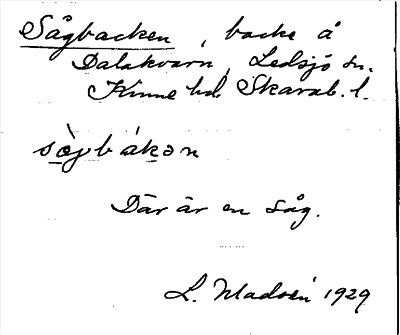 Sågbacken, backe å
Dalakvarn, Ledsjö sn.
Kinne hd. Skarab. l.
sò̱gbáḵən
Där är en såg.
L. Madsén 1929